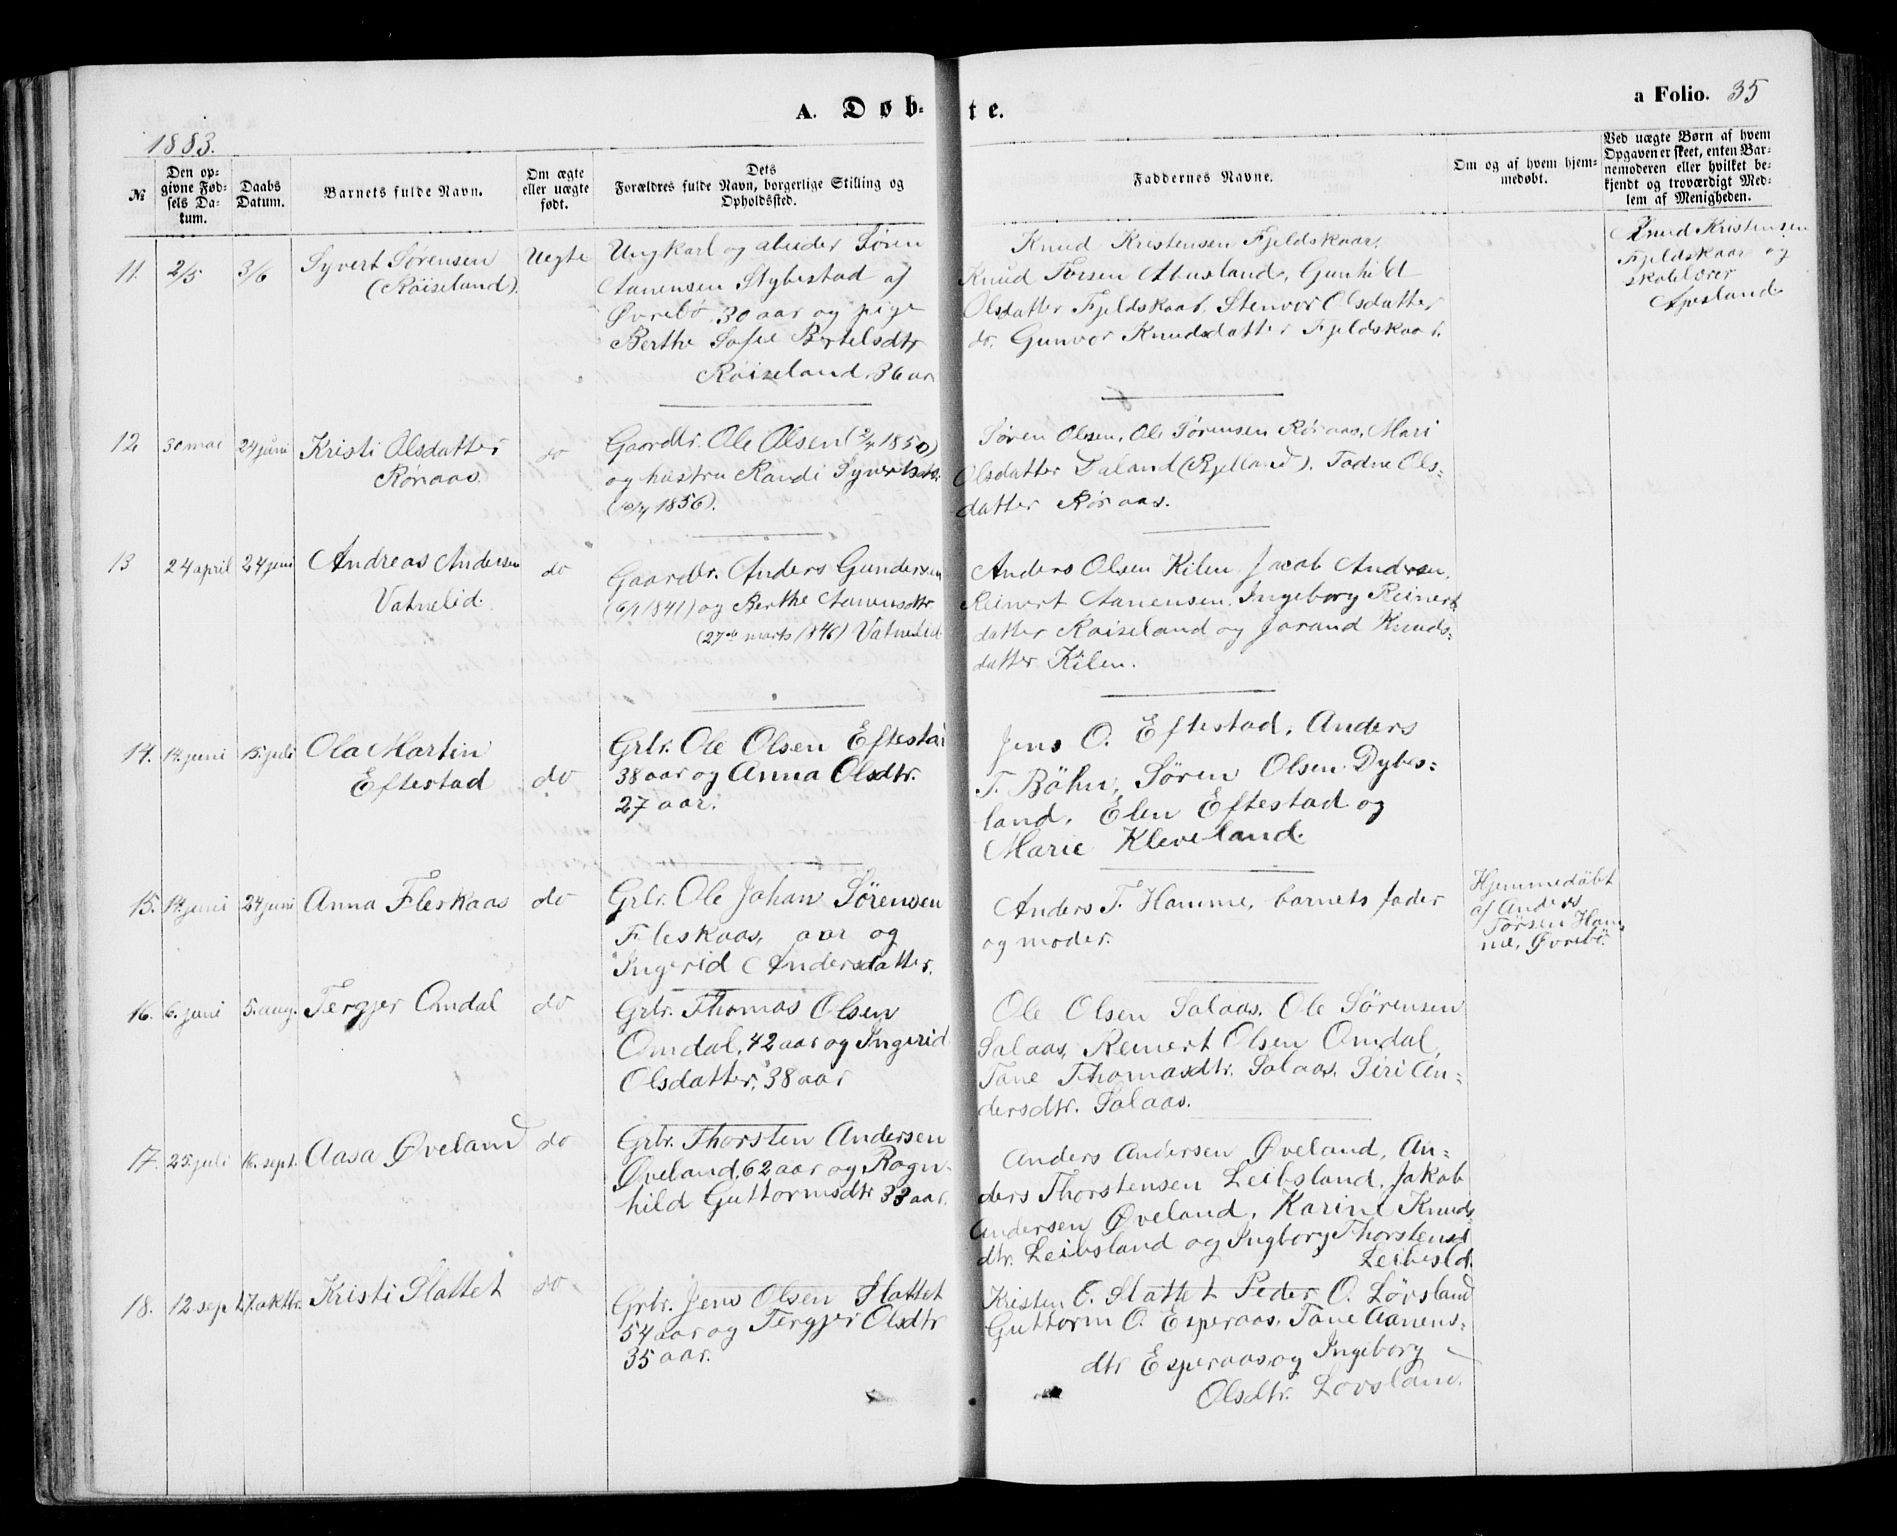 A. Døb-te.
a Folio. 35
1883.
№
Den op-
givne Fød-
sels Da-
tum.
Daabs
Datum.
Barnets fulde Navn.
Om ægte
eller uægte
født.
Dets
Forældres fulde Navn, borgerlige Stilling og
Opholdssted.
Faddernes Navne.
Om og af hvem hjem-
medøbt.
Ved uægte Børn af hvem
Opgaven er skeet, enten Bar-
nemoderen eller hvilket be-
kjendt og troværdigt Med-
lem af Menigheden.
11. 2/5 3/6
Syvert Sørensen
(Røiseland).
Uegte
Ungkarl og Søren
Aanensen Stybestad af
Øvrebö 30 aar og pige
Berthe Sofie Bertelsdtr
Røiseland. 36 aar
Knud Kristensen Fjeldskaar,
Knud Torsen Abusland, Gunhild
Olsdatter Fjeldskaar, Stenvor Olsdatter
do. Gunvor Knudsdatter Fjeldskaar.
Knud Kristensen
Fjeldskaar og
skolelærer
12 30 mai 24 juni
Kristi Olsdatter
Røraas.
do
Gaardbr. Ole Olsen (2/4 1850)
og hustru Randi Syvertsdtr.
(10/4 1856).
Søren Olsen, Ole Sørensen Røraas, Mari
Olsdatter Daland (Rjelland). Tadne Ols-
datter Røraas.
13 24 april 24 juni
Andreas Andersen
Vatnelid.
do
Gaardbr. Anders Gundersen
(6/1 1841) og Berthe Aanensdtr.
(27de marts 1846) Vatnelid
Anders Olsen Kilen, Jacob Andersen,
Reinert Aanensen, Ingeborg Reinerts
datter Røiseland og Jorand Knuds-
datter Kilen.
14. 14. juni 15. juli
Ola Martin
Eftestad
do
Grbr. Ole Olsen Eftestad
38 aar og Anna Olsdtr.
27 aar.
Jens O. Eftestad, Anders
T. Böhn, Søren Olsen Dybes-
land, Elen Eftestad og
Marie Kleveland.
15. 14. juni 24 juni
Anna Fleskaas
do
Grbr. Ole Johan Sørensen
Fleskaas, aar og
Ingerid Andersdatter.
Anders T. Homme, barnets fader
og moder.
Hjemmedøbt
af Anders
Tørsen Hom-
me, Øvrebö.
16. 6. juni 5. aug.
Tergjer Omdal
do
Grbr. Thomas Olsen
Omdal, 42 aar og Ingerid
Olsdatter, 38 aar
Ole Olsen Salaas, Ole Sørensen
Salaas, Reinert Olsen Omdal,
Tone Thomasdtr. Salaas, Siri An-
dersdtr. Salaas.
17. 25. juli 16. sept.
Aasa Øveland
do
Grbr. Thorsten Andersen
Øveland, 62 aar og Ragn-
hild Guttormsdtr 33 aar.
Anders Andersen Øveland, An-
ders Thorstensen Leibsland, Jakob
Andersen Øveland, Karine Knuds
dtr. Leibsland og Ingborg Thorstensd
Leibsld.
18. 12. sept 7. oktbr.
Kristi Slattet
do
Grbr. Jens Olsen Slattet
54 aar og Tergjer Olsdtr
35 aar.
Kristen O. Slattet Peder O. Lövsland
Guttorm O. Esperaas, Tone Aanens-
dtr Esperaas og Ingeborg
Olsdtr. Lovsland.